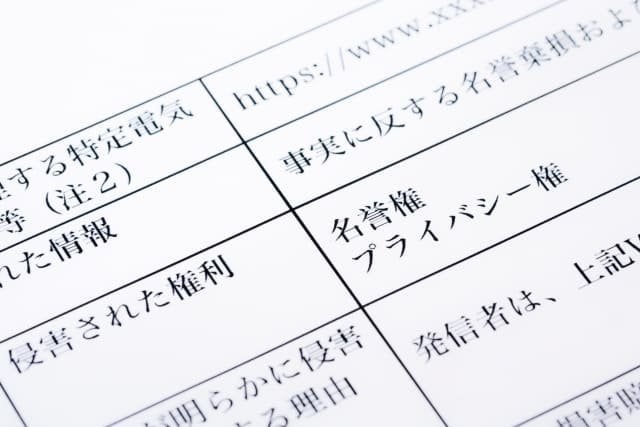 https://www.xxx
する特定電気
等（注２）
事実に反する名誉棄損およ
れた情報
侵害された権利
名誉権
プライバシー権
が明らかに侵害
する理由
発信者は、上記
損害賠